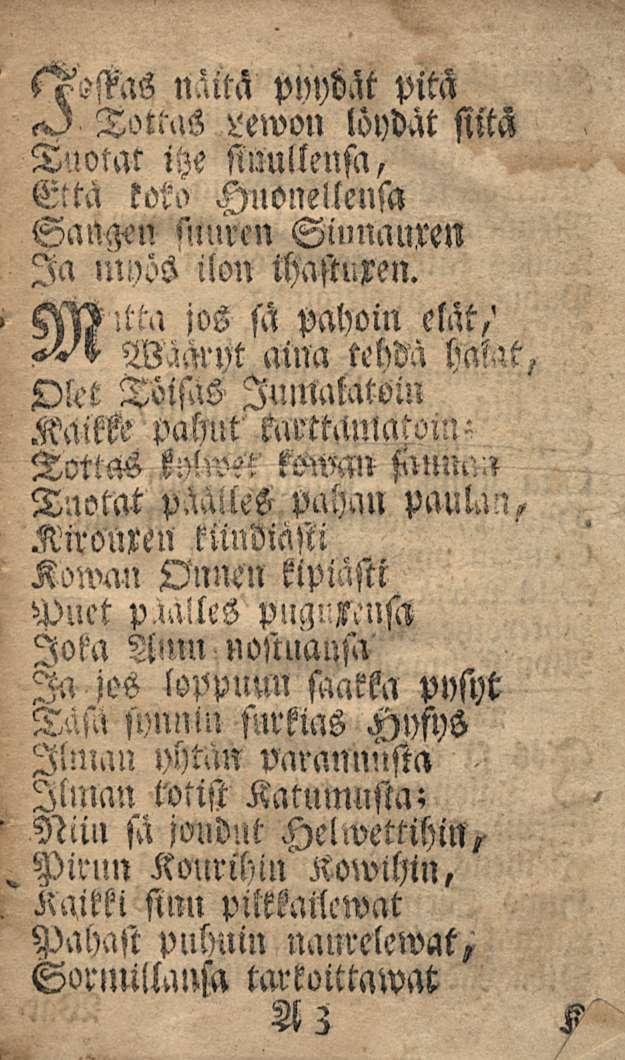 Joskas näitä pyydät pitä
Tottas Lewon löydät siitä
Tuotat itze sinullensa,
Että koko Huonellensa
Sangen suuren Siunauxen
Ja myös ilon ihastuxen.
Mutta jos sä pahoin elät,
Wääryt aina tehdä halat,
Olet Töisäs Jumalatoin
Kaikke pahut karttamatoin:
Tottas kylwet kowan saunan
Tuotat päälles pahan paulan,
Kirouxen kiindiästi
Kowan Onnen kipiästi
Puet päälles puguxensa
Joka Amu nostuansa
Ja jos loppuun saakka pysyt
Täsä synnin surkias Hysys
Ilman yhtän parannusta
Ilman totist Katumusta;
Niin sä joudut Helwettihin,
Pirun Kourihin Kowihin,
Kaikki sinu pilkkailewat
Pahast puhuin naurelewat,
Sormillansa tarkoittawat
A 3 K